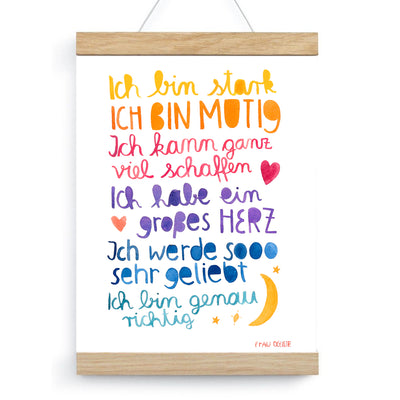 Ich bin stark
ICH BIN MUTIG
Ich kann ganz
viel schaffen
Ich habe ein
großes HERZ
Ich werde sooo
sehr geliebt
Ich bin genau
richtig